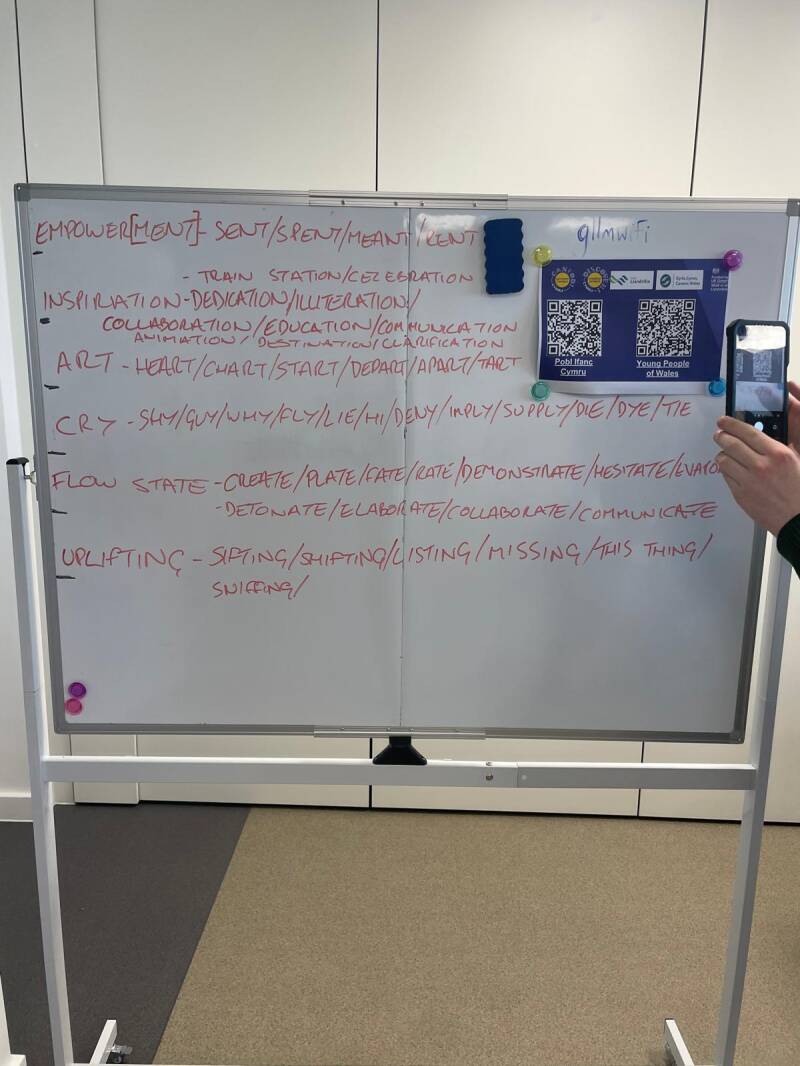 EMPOWER[MENT]- SENT/SPENT/MEANT/RENT
gllmwifi
- TRAIN STATION/CELEBRATION
INSPIRIATION-DEDICATION/ILLITERATION/
COLLABORATION/EDUCATION/COMMUNICATION
ANIMATION/DESTINATION/CLARIFICATION
ART - HEART/CHART/START/DEPART/APART/TART
CRY - SHY/GUY/WHY/FLY/LIE/HI/DENY/IMPLY/SUPPLY/DIE/DYE/TIE
FLOW STATE - CREATE/PLATE/FATE/RATE/DEMONSTRATE/HESITATE/
- DETONATE/ELABORATE/COLLABORATE/COMMUNICATE
UPLIFTING - SIFTING/SHIFTING/LISTING/MISSING/THIS THING/
SNIFFING/
Gyrfa Cymru
Careers Wales
Pobl Ifanc
Cymru
Young People
of Wales